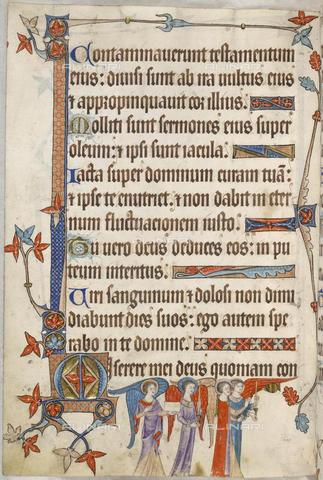 Contaminaverunt testamentum
eius: divisi sunt ab ira vultus eius
⁊ appropinquavit cor illius.
Molliti sunt sermones eius super
oleum: ⁊ ipsi sunt iacula.
Iacta super dominum curam tuā:
⁊ ipse te enutriet: ⁊ non dabit in eter
num fluctuacionem iusto.
Tu vero deus deduces eos: in pu
teum interitus.
Viri sanguinum ⁊ dolosi non dimi
diabunt dies suos: ego autem spe
rabo in te domine.
Miserere mei deus quoniam con
ALINARI
ALINARI